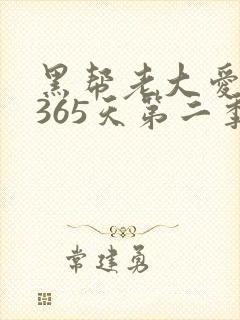 黑帮老大爱
365天第二季
常建勇